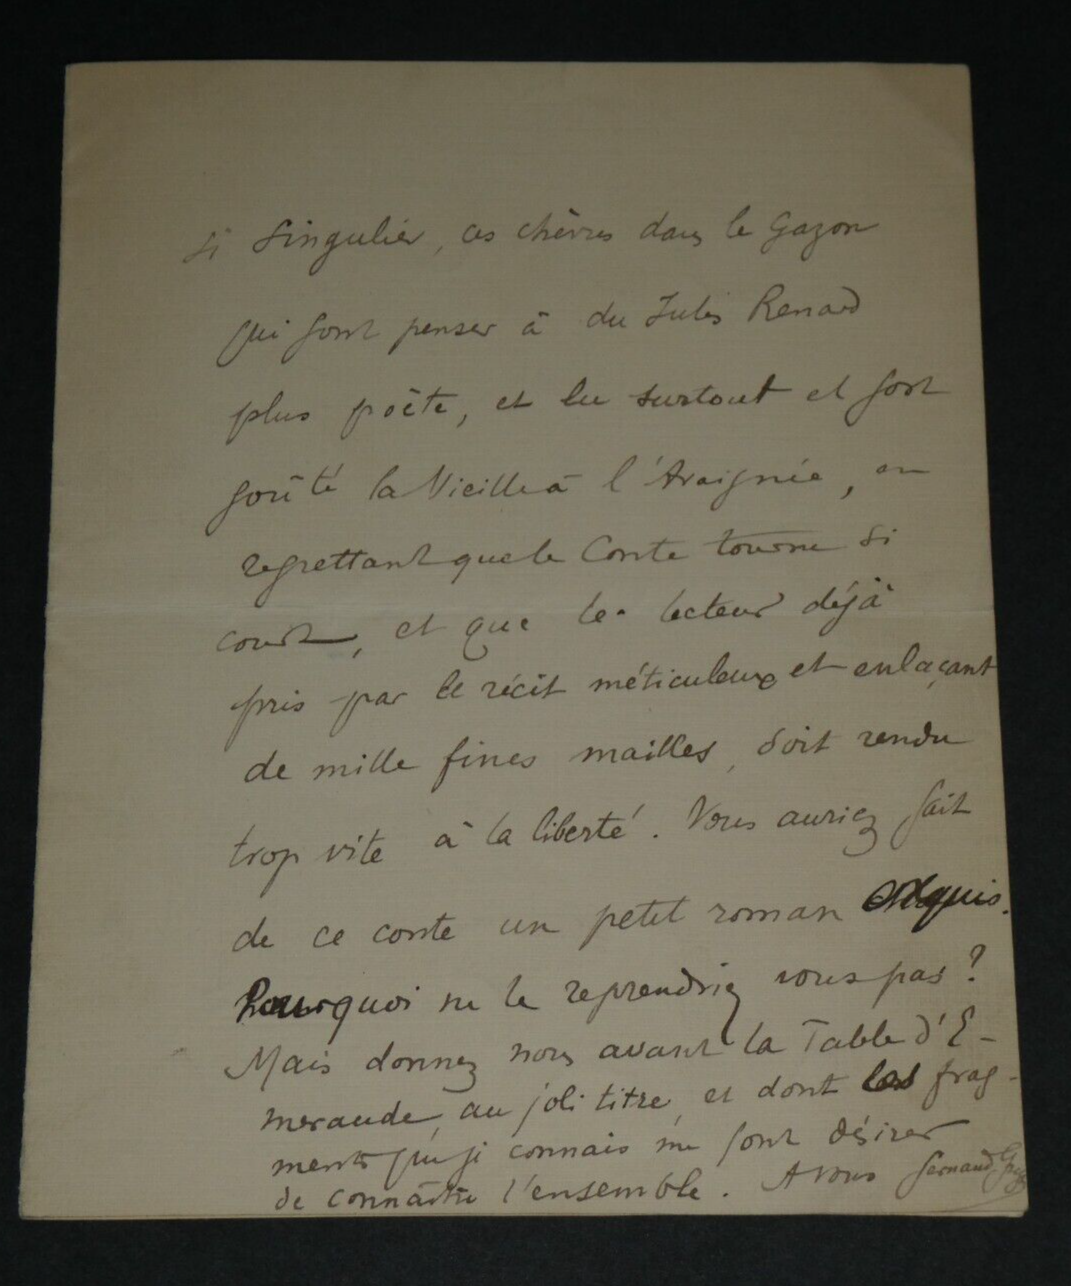 si singulier, ces chèvres dans le gazon
qui font penser à du Jules Renard
plus poète, et lu surtout et fort
goûté la Vieille à l'Araignée, en
regrettant que le Conte tourne si
court, et que le lecteur déjà
pris par le récit méticuleux et enlaçant
de mille fines mailles, soit rendu
trop vite à la liberté. Vous auriez fait
de ce conte un petit roman exquis.
Pourquoi ne le reprendriez vous pas?
Mais donnez nous avant la Table d'É-
meraude, au joli titre, et dont les frag-
ments que je connais me font désirer
de connaître l'ensemble. A vous Fernand Gregh